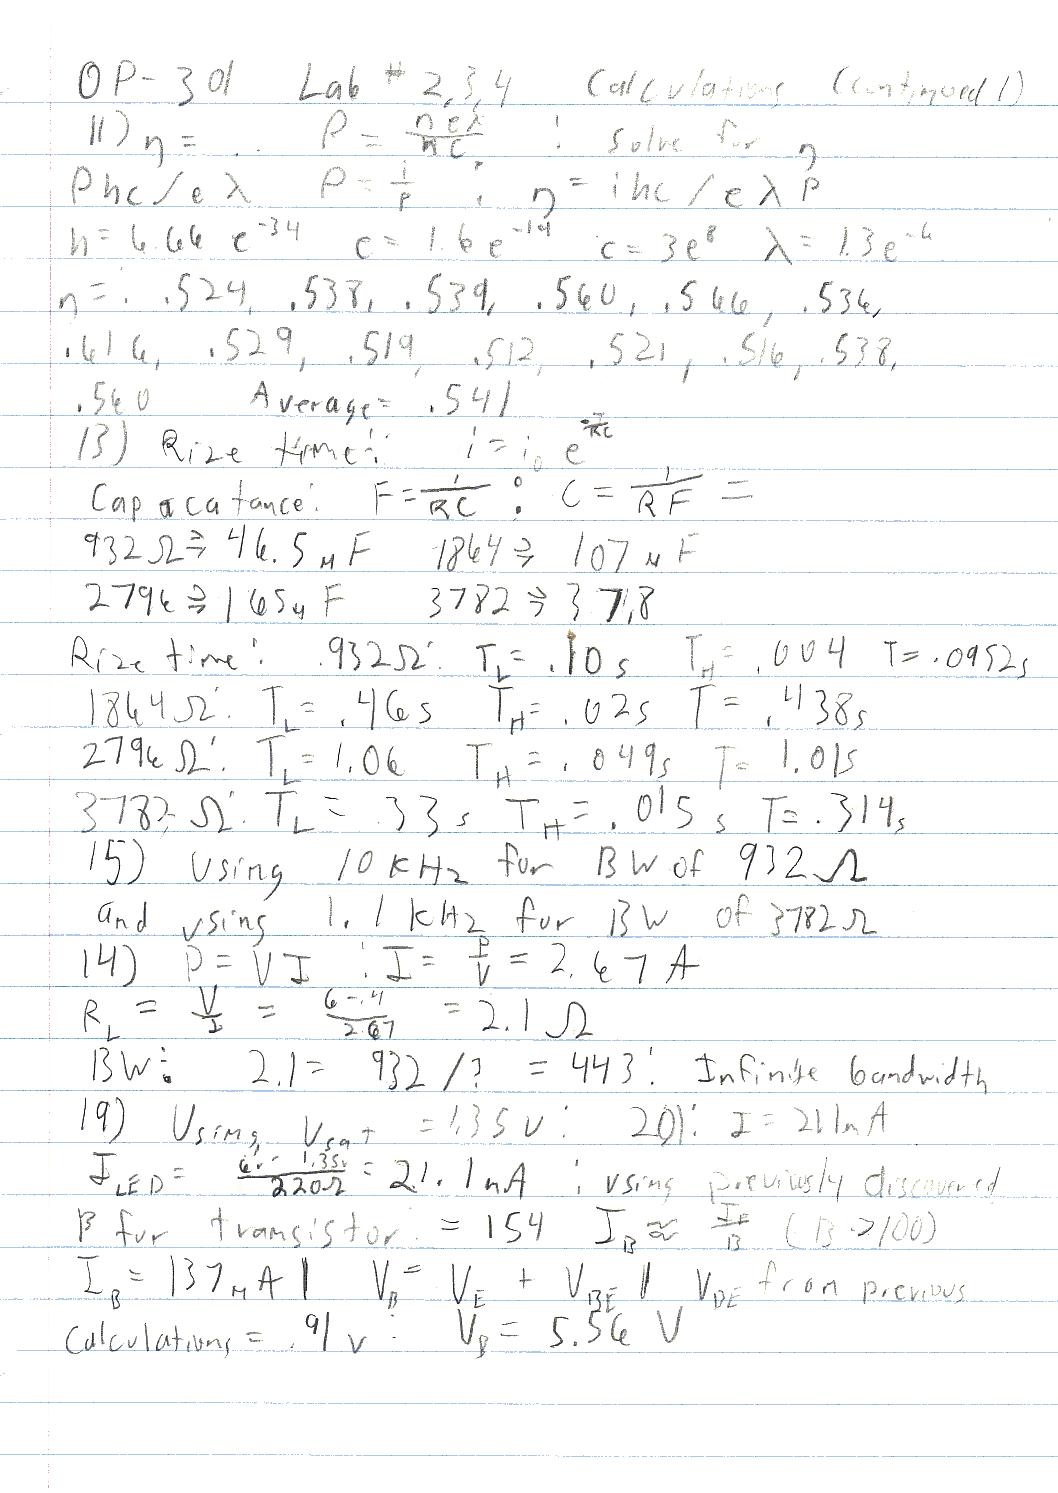 OP-301 Lab # 2,3,4 Calculations (continued 1)
11) η = .. P = ηeλ/hc : solve for η
Phc/eλ P = i/P ∴ η = ihc/eλP
h = 6.66 e^-34 e = 1.6 e^-19 c = 3e^8 λ = 1.3e^-6
η = . .524, .538, .539, .560, .566, .536,
.616, .529, .519, .512, .521, .516, .538,
.560 Average = .541
13) Rize time: i = i₀ e
Capacatance: F = 1/RC : C = 1/RF =
932Ω ⇒ 46.5 μF 1864 ⇒ 107 μF
2796 ⇒ 165μF 3782 ⇒ 37.8
Rize time: 932Ω: T_L = .10s T_H = .004 T = .0952s
1864Ω: T_L = .46s T_H = .02s T = .438s
2796Ω: T_L = 1.06 T_H = .049s T = 1.01s
3782Ω: T_L = .33s T_H = .015s T = .314s
15) Using 10 KHz for BW of 932Ω
and using 1.1 KHz for BW of 3782Ω
14) P = VI : I = P/V = 2.67 A
R_L = V/I = 6-.4/2.67 = 2.1Ω
BW: 2.1 = 932/? = 443: Infinite bandwidth
19) Using V_sat = 1.35V: 20): I = 21.1mA
I_LED = 6v - 1.35v/220Ω = 21.1mA : using previously discovered
β for transistor: = 154 I_B ≈ I_E/β (β>100)
I_B = 137μA | V_B = V_E + V_BE | V_BE from previous
Calculations = .91v : V_B = 5.56 V